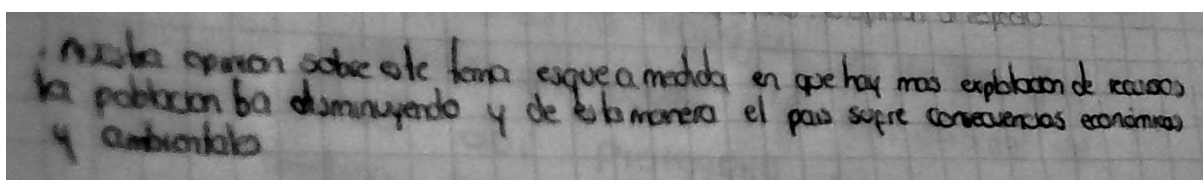 nuestra opinion sobre este tema esque a medida en que hay mas explotacion de recursos
la poblacion ba disminuyendo y de esta manera el pais sufre consecuencias económicas
y ambientales